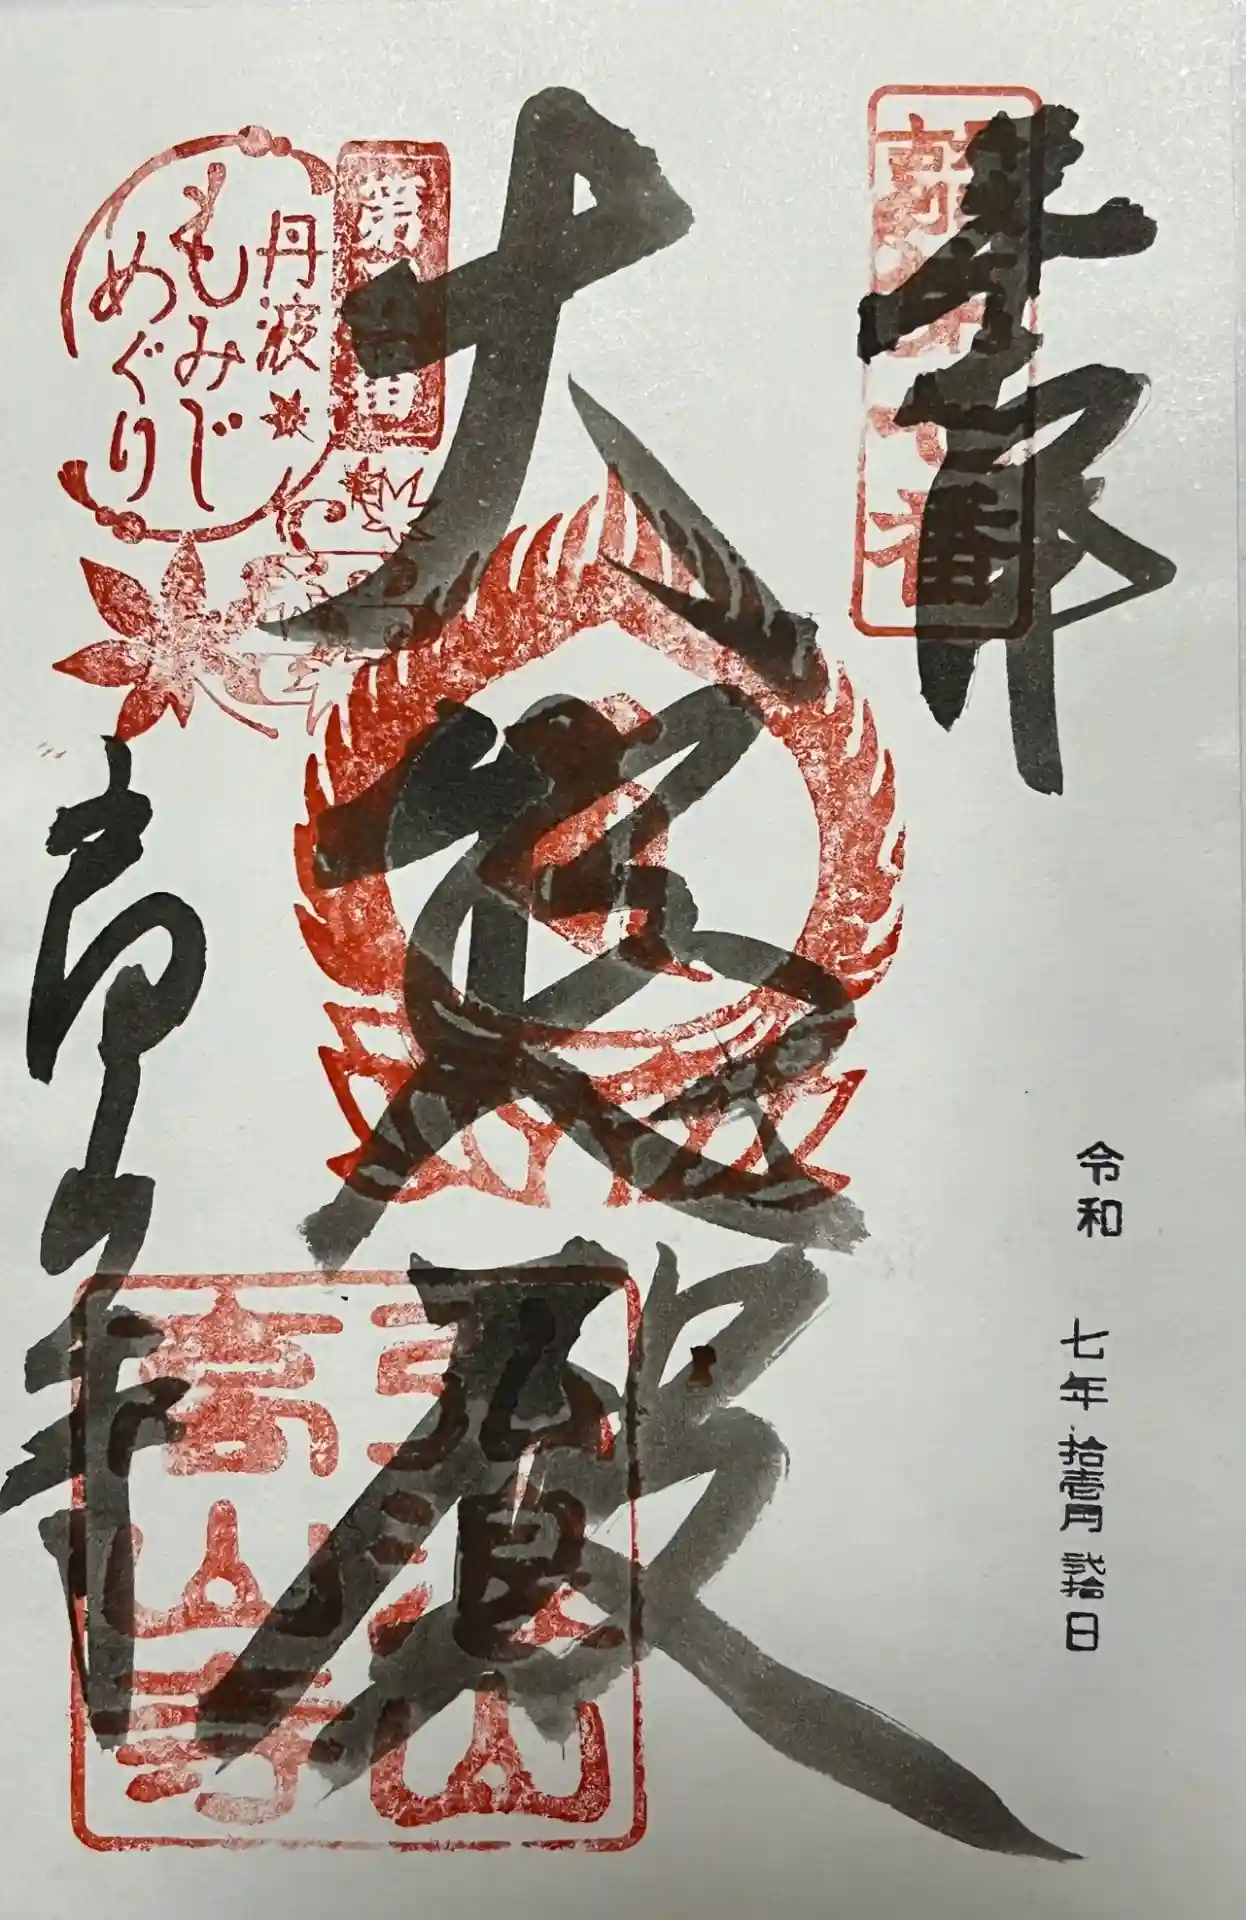 奉拝
令和 七年 拾壱月 弐拾日
大悲殿
弘浪山
高山寺
丹波
もみじ
めぐり
高山寺